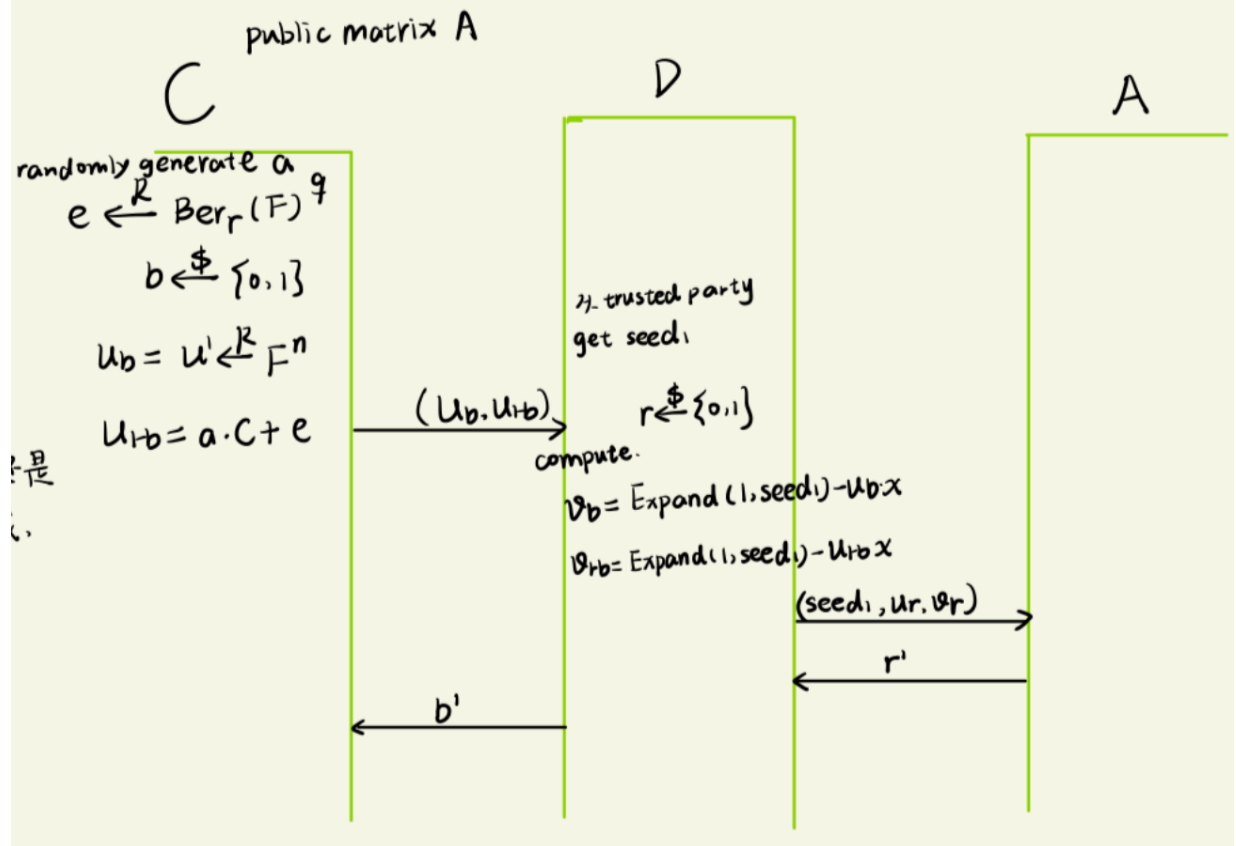 public matrix A
C
D
A
randomly generate a
e ←R Ber_r(F)^q
b ←$ {0,1}
u_b = u' ←R F^n
u_{1-b} = a·C+e
是
(u_b, u_{1-b})
trusted party
get seed_1
r ←$ {0,1}
compute.
v_b = Expand(1,seed_1)-u_b·x
v_{1-b} = Expand(1,seed_1)-u_{1-b}x
(seed_1, u_r, v_r)
r'
b'